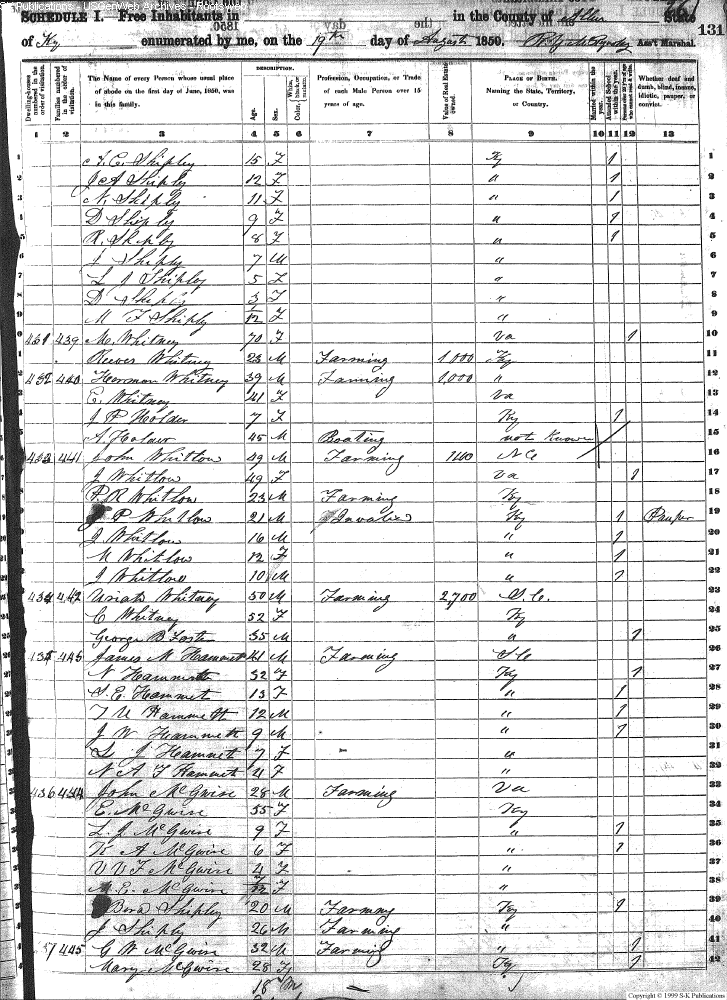 S-K Publications - USGenWeb Archives - Rootsweb
SCHEDULE I. Free Inhabitants in in the County of Allen State
of Ky enumerated by me, on the 19th day of August 1850. Ass't Marshal.
131
Dwelling-houses numbered in the order of visitation.
Families numbered in the order of visitation.
The Name of every Person whose usual place of abode on the first day of June, 1850, was in this family.
DESCRIPTION.
Age.
Sex.
White, black, or mulatto.
Profession, Occupation, or Trade of each Male Person over 15 years of age.
Value of Real Estate owned.
PLACE OF BIRTH. Naming the State, Territory, or Country.
Married within the year.
Attended School within the year.
Whether deaf and dumb, blind, insane, idiotic, pauper, or convict.
1 2 3 4 5 6 7 8 9 10 11 12 13
1 A. C. Shiply 15 F Ky 1 1
2 J A Shiply 12 F " 1 2
3 N. Shiply 11 F " 1 3
4 D Shiply 9 F " 1 4
5 R. Shiply 8 F " 1 5
6 J Shiply 7 M " 6
7 L J Shiply 5 F " 7
8 D Shiply 3 F " 8
9 M F Shiply /12 F " 9
10 431 439 M. Whitney 70 F Va 1 10
11 Reeves Whitney 23 M Farming 1,000 Ky 11
12 432 440 Herman Whitney 39 M Farming 1,000 " 12
13 E. Whitney 41 F Va 13
14 J P Holder 7 F Ky 1 14
15 A Holder 45 M Boating not Known 15
16 433 441 John Whitlow 49 M Farming N C 16
17 J Whitlow 49 F Va 1 17
18 P. R Whitlow 23 M Farming Ky 18
19 J P Whitlow 21 M Invalid Ky 1 Pauper 19
20 J Whitlow 16 M " 1 20
21 M Whitlow 12 F " 1 21
22 J Whitlow 10 M " 1 22
23 434 442 Uriah Whitney 50 M Farming 2,700 S. C. 23
24 C Whitney 52 F Ky 24
25 George B 35 M " 1 25
26 435 443 James M Hammett 41 M Farming S C 26
27 N Hammett 32 F Ky 1 27
28 S. E. Hammett 13 F " 1 28
29 T U Hammett 12 M " 1 29
30 J W Hammett 9 M " 1 30
31 L J Hammett 7 F " 31
32 N A F Hammett 4 F " 32
33 436 444 John McGwire 28 M Farming Va 33
34 E. McGwire 35 F Ky 34
35 L. J McGwire 9 F " 1 35
36 A McGwire 6 F " 1 36
37 McGwire 4 F " 37
38 M. E. McGwire /12 F " 38
39 Shiply 20 M Farming Ky 1 39
40 J Shiply 26 M Farming " 40
41 7 445 G W McGwire 32 M Farming " 1 41
42 Mary McGwire 28 F Ky 1 42
18 M
Copyright © 1999 S-K Publications